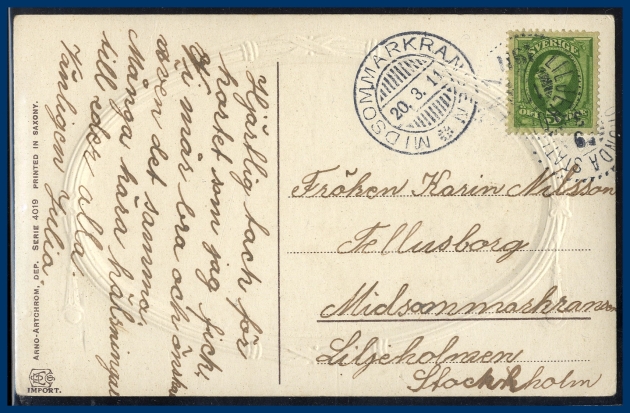 Hjärtlig tack för
kortet som jag fick.
Vi mår bra och önskar
eder det samma.
Många kära hälsningar
till eder alla.
Vänligen Julia.
MIDSOMMARKRANSEN
20. 3. 11
SVERIGE
Fröken Karin Nilsson
Tellusborg
Midsommarkransen
Liljeholmen
Stockholm
ARNO-ARTCHROM, DEP. SERIE 4019 PRINTED IN SAXONY.
IMPORT.